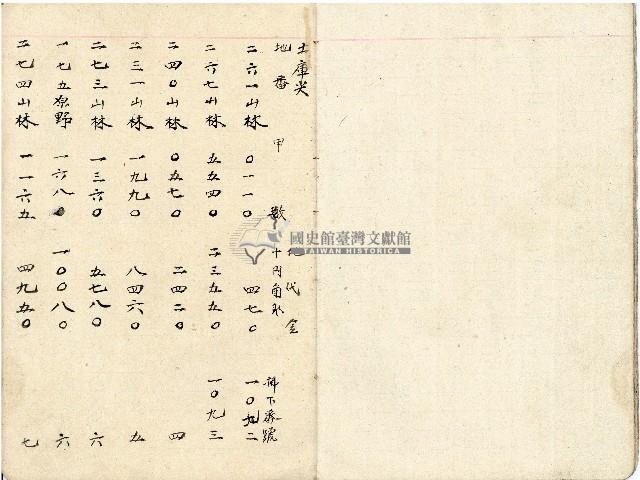 土庫尖 代金
地番 甲數 十円角 拂下番號
二六一山林 〇一一〇 四七〇 一〇九二
二六七山林 五五四〇 二三五五〇 一〇九三
二四〇山林 〇五七〇 二四二〇 四
二三一山林 一九九〇 八四六〇 五
二七三山林 一三六〇 五七八〇 六
一七五原野 一六八〇 一〇〇八〇 六
二七四山林 一一六五 四九五〇 七
國史館臺灣文獻館
TAIWAN HISTORICA